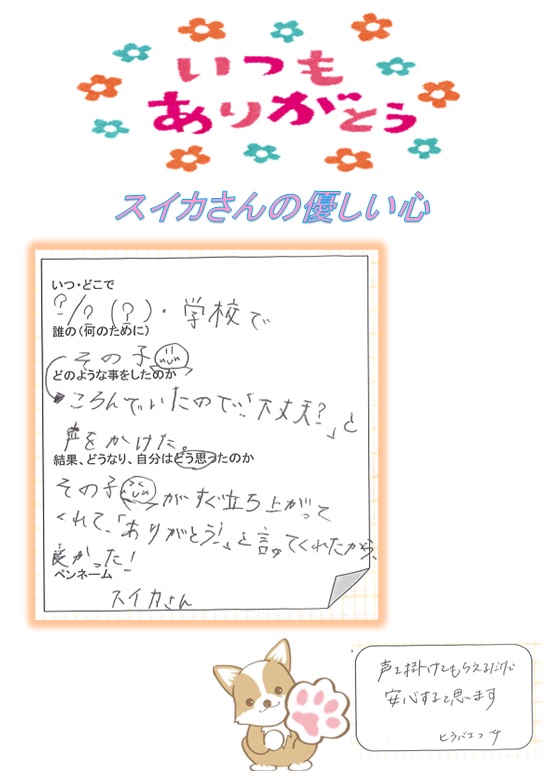 いつも
ありがとう
スイカさんの優しい心
いつ・どこで
?/?(?)・学校で
誰の(何のために)
その子
どのような事をしたのか
ころんでいたので「大丈夫?」と
声をかけた。
結果、どうなり、自分はどう思ったのか
その子 がすぐ立ち上がって
くれて、「ありがとう!」と言ってくれたから、
良かった!
ペンネーム
スイカさん
声を掛けてもらえるだけで
安心すると思います